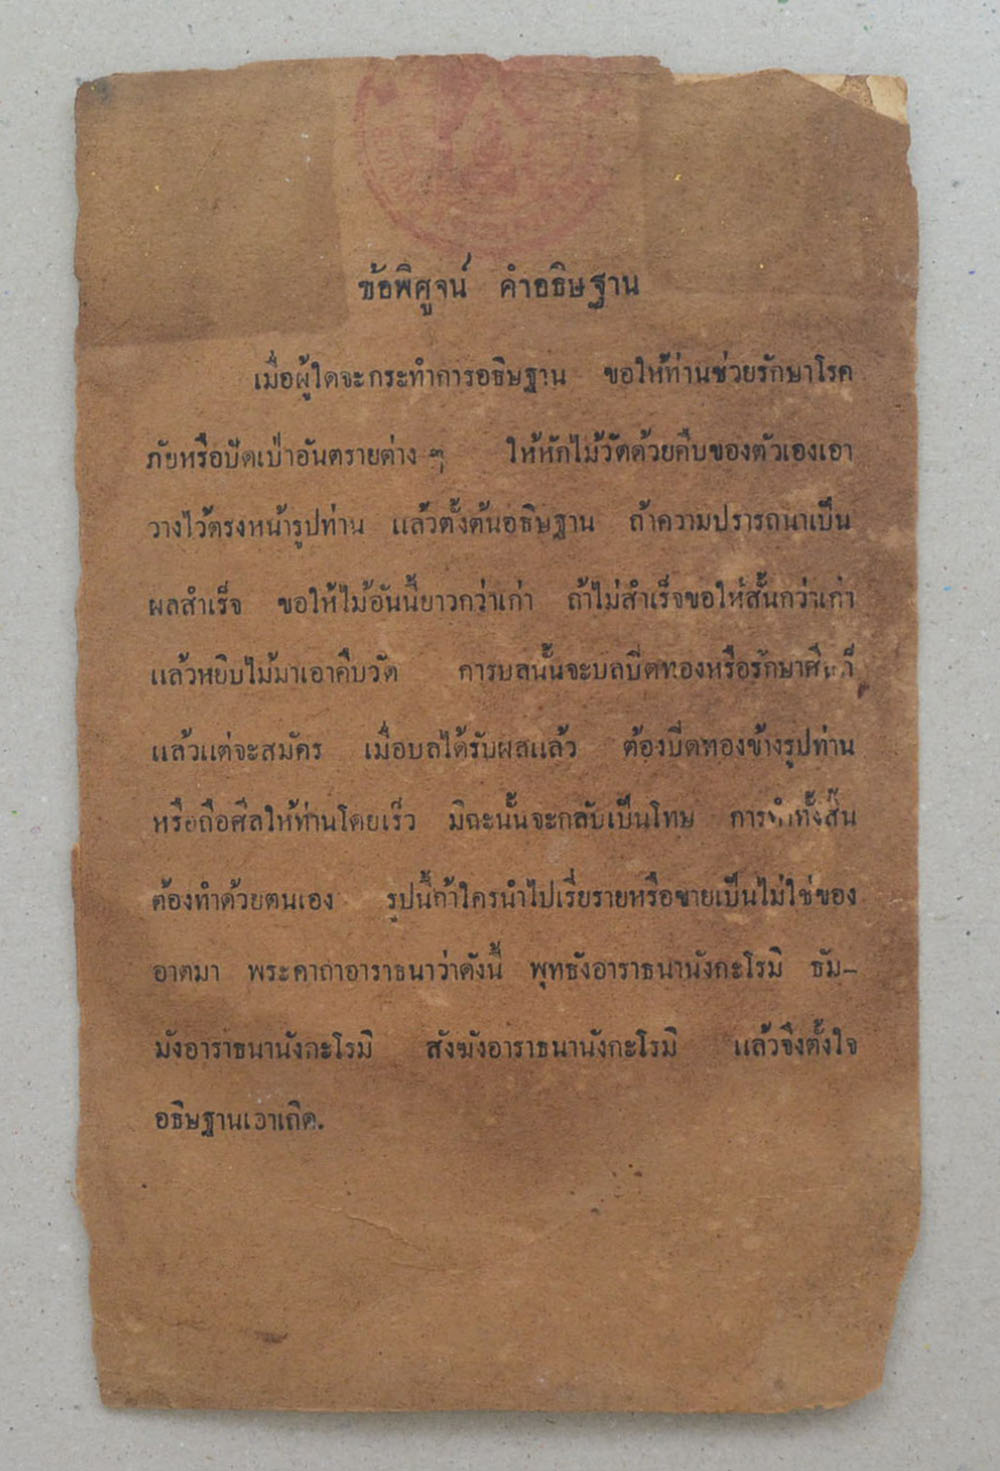 ข้อพิศูจน์ คำอธิษฐาน
เมื่อผู้ใดจะกระทำการอธิษฐาน ขอให้ท่านช่วยรักษาโรค
ภัยหรือปัดเป่าอันตรายต่าง ๆ ให้หักไม้วัดด้วยคืบของตัวเองเอา
วางไว้ตรงหน้ารูปท่าน แล้วตั้งต้นอธิษฐาน ถ้าความปรารถนาเป็น
ผลสำเร็จ ขอให้ไม้อันนี้ยาวกว่าเก่า ถ้าไม่สำเร็จขอให้สั้นกว่าเก่า
แล้วหยิบไม้มาเอาคืบวัด การบลนั้นจะบลปิดทองหรือรักษาศีลก็
แล้วแต่จะสมัคร เมื่อบลได้รับผลแล้ว ต้องปิดทองข้างรูปท่าน
หรือถือศีลให้ท่านโดยเร็ว มิฉะนั้นจะกลับเป็นโทษ การทำทั้งสิ้น
ต้องทำด้วยตนเอง รูปนี้ถ้าใครนำไปเรี่ยรายหรือขายเป็นไม่ใช่ของ
อาตมา พระคาถาอาราธนาว่าดังนี้ พุทธังอาราธนานังกะโรมิ ธัม-
มังอาราธนานังกะโรมิ สังฆังอาราธนานังกะโรมิ แล้วจึงตั้งใจ
อธิษฐานเอาเถิด.